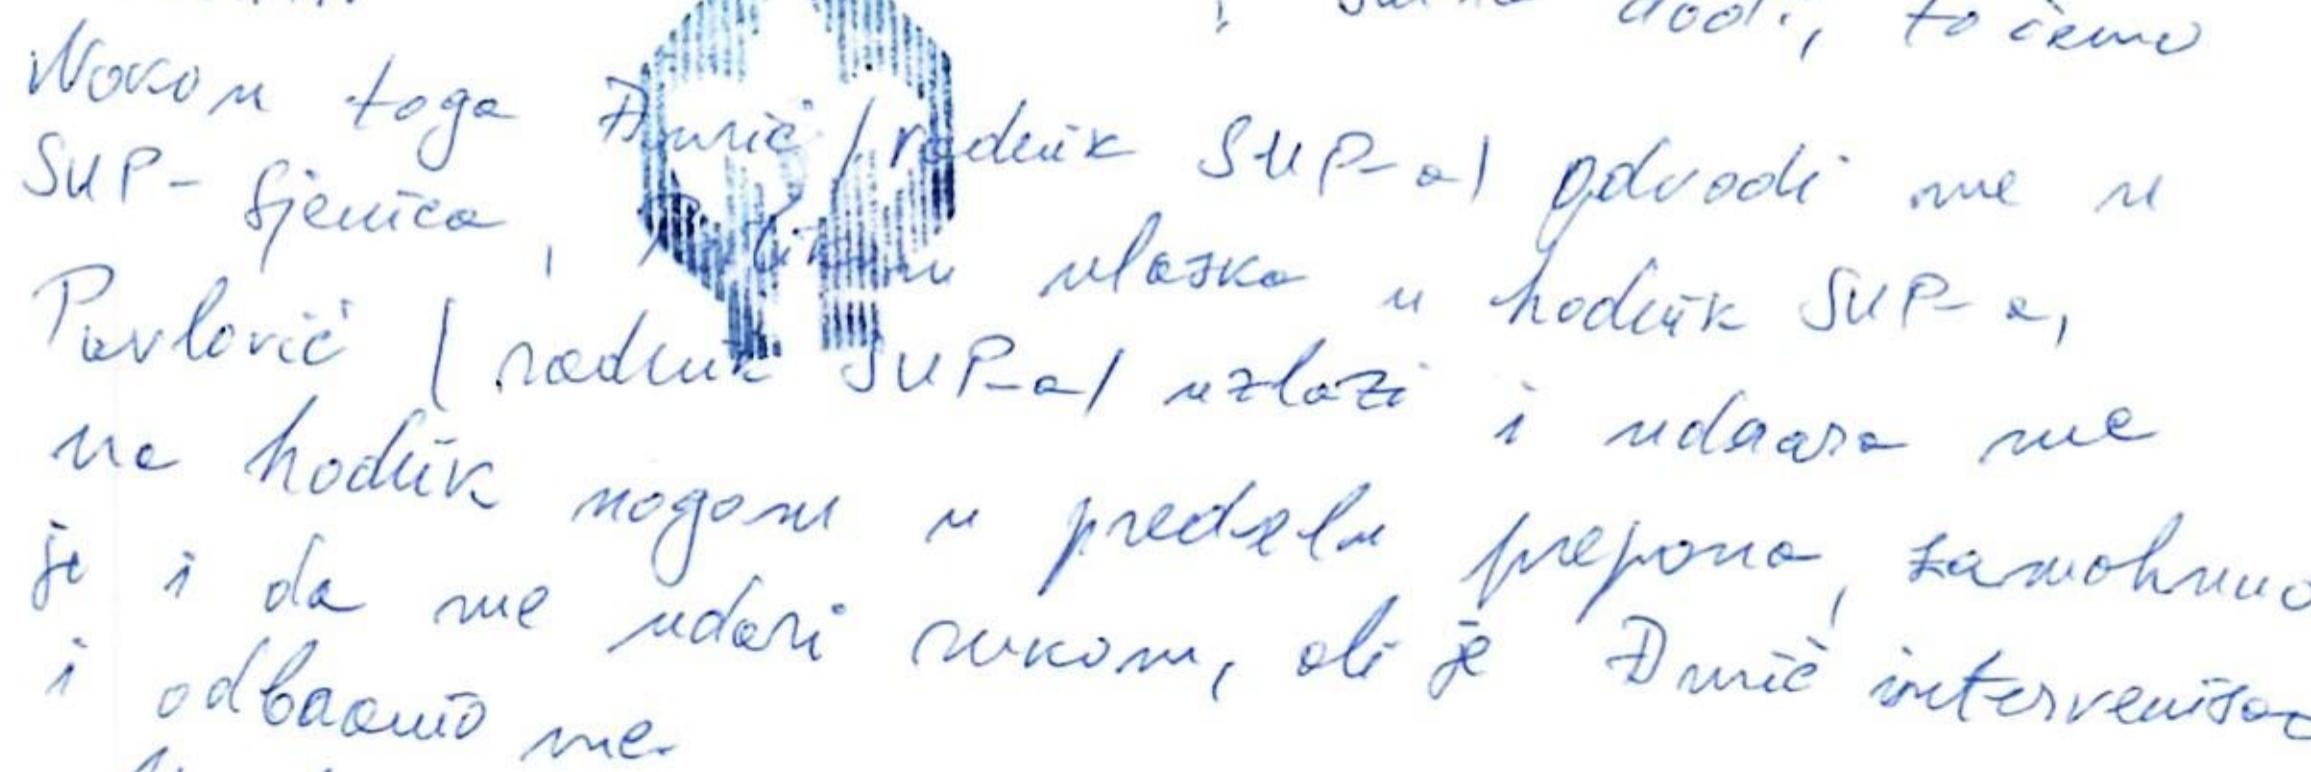 dođi, to ćemo
Nakon toga Đurić /radnik SUP-a/ odvodi me u
SUP-Sjenica, Prilikom ulaska u hodnik SUP-a,
Pavlović /radnik SUP-a/ izlazi i udaara me
na hodnik nogom u predelu prepona, zamohnuo
je i da me udari rukom, ali je Đurić intervenisao
i odbranio me.